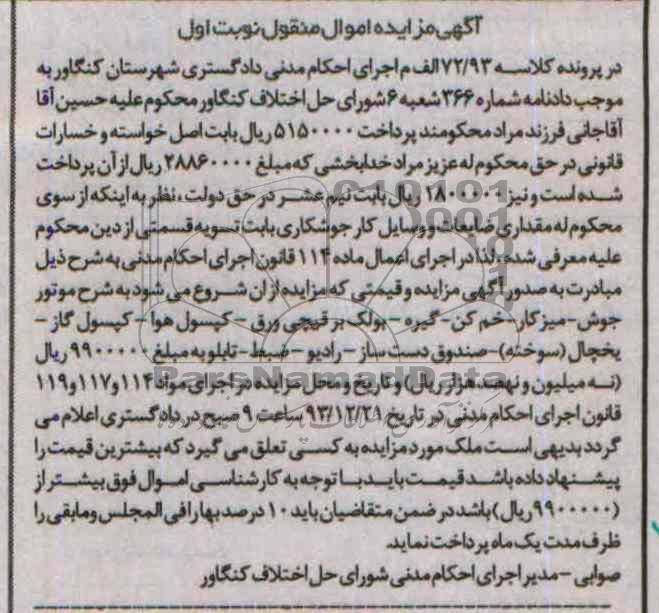 آگهی مزایده اموال منقول نوبت اول
در پرونده کلاسه ۷۲/۹۳ الف م اجرای احکام مدنی دادگستری شهرستان کنگاور به
موجب دادنامه شماره ۳۶۶ شعبه ۶ شورای حل اختلاف کنگاور محکوم علیه حسین آقا
آقاجانی فرزند مراد محکومند پرداخت ۵۱۵۰۰۰۰۰ ریال بابت اصل خواسته و خسارات
قانونی در حق محکوم له عزیز مراد خدابخشی که مبلغ ۲۸۸۶۰۰۰۰ ریال از آن پرداخت
شده است و نیز ۱۸۰۰۰۰۰ ریال بابت نیم عشر در حق دولت، نظر به اینکه از سوی
محکوم له مقداری ضایعات و وسایل کار جوشکاری بابت تسویه قسمتی از دین محکوم
علیه معرفی شده، لذا در اجرای اعمال ماده ۱۱۴ قانون اجرای احکام مدنی به شرح ذیل
مبادرت به صدور آگهی مزایده و قیمتی که مزایده از ان شروع می شود به شرح موتور
جوش - میز کار - خم کن - گیره - بولک بر قیچی ورق - کپسول هوا - کپسول گاز -
یخچال (سوخته) - صندوق دست ساز - رادیو - ضبط - تابلو به مبلغ ۹۹۰۰۰۰۰ ریال
(نه میلیون و نهصد هزار ریال) و تاریخ و محل مزایده در اجرای مواد ۱۱۴ و ۱۱۷ و ۱۱۹
قانون اجرای احکام مدنی در تاریخ ۹۳/۱۲/۲۱ ساعت ۹ صبح در دادگستری اعلام می
گردد بدیهی است ملک مورد مزایده به کسی تعلق می گیرد که بیشترین قیمت را
پیشنهاد داده باشد قیمت باید با توجه به کارشناسی اموال فوق بیشتر از
(۹۹۰۰۰۰۰ ریال) باشد در ضمن متقاضیان باید ۱۰ درصد بهار افی المجلس و مابقی را
ظرف مدت یک ماه پرداخت نماید.
صوابی - مدیر اجرای احکام مدنی شورای حل اختلاف کنگاور
ParsNamadData